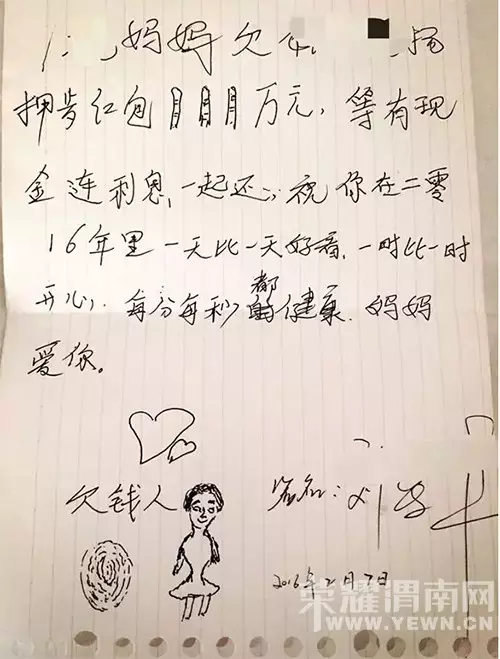 妈妈欠
押岁红包月月月万元，等有现
金连利息，一起还，祝你在二零
16年里一天比一天好看，一时比一时
开心，每分每秒都健康，妈妈
爱你。
欠钱人
签名：
2016年2月7日
荣耀渭南网
WWW.YEWN.CN